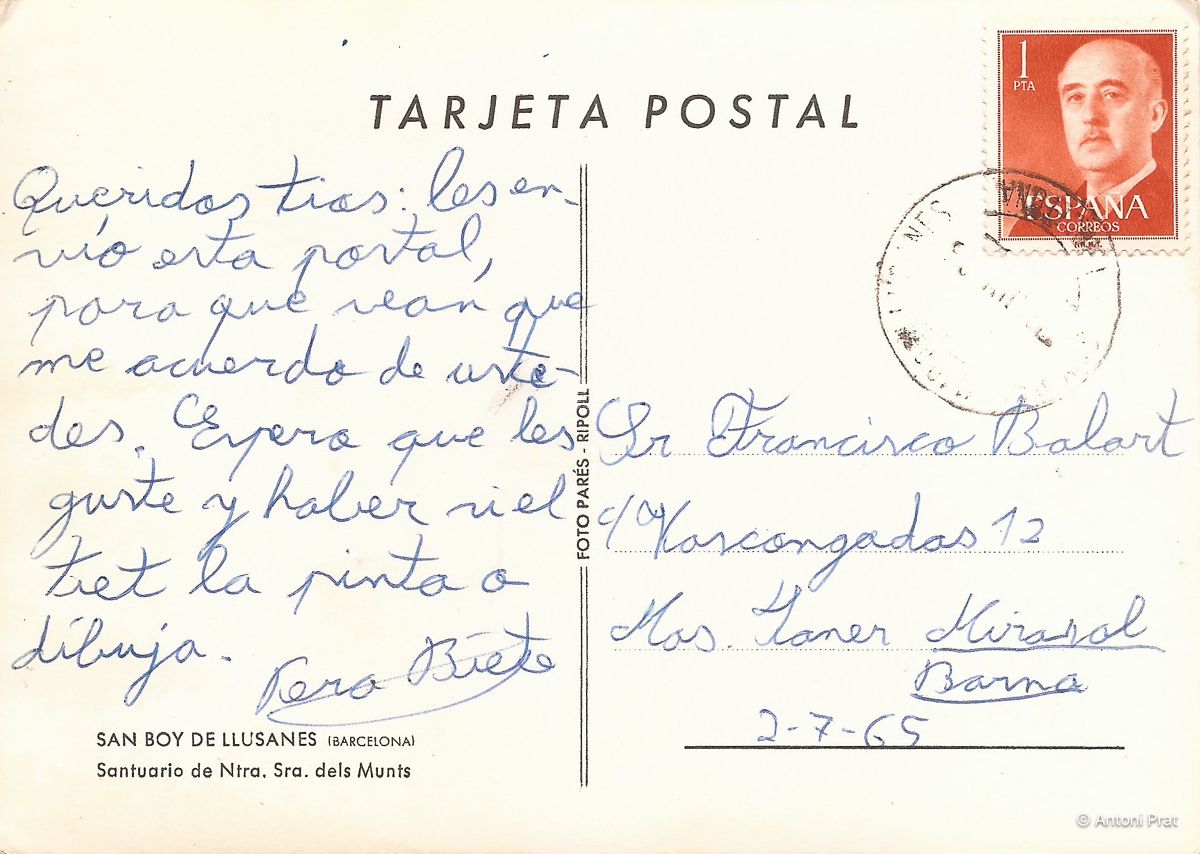 TARJETA POSTAL
1
PTA
ESPAÑA
CORREOS
Queridos tios: les en-
vío esta postal,
para que vean que
me acuerdo de uste-
des. Espero que les
guste y haber si el
tiet la pinta o
dibuja.
Pera Biete
SAN BOY DE LLUSANES (BARCELONA)
Santuario de Ntra. Sra. dels Munts
FOTO PARÉS - RIPOLL
Sr Francisco Balart
c/ Vascongadas 12
Mas. Janer Mirasol
Barna
2-7-65
© Antoni Prat